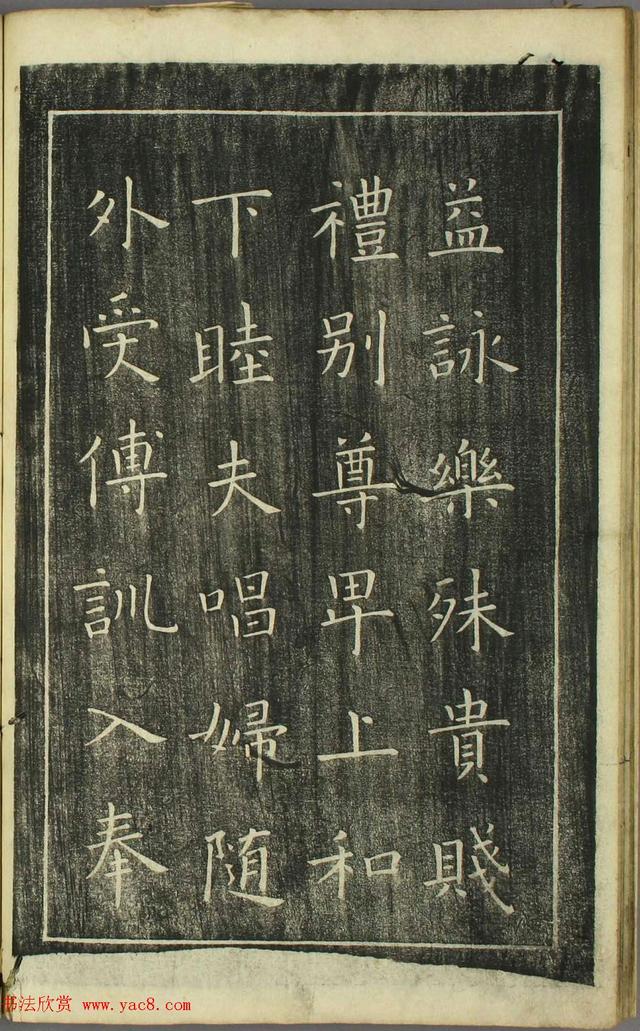 益詠樂殊貴賤
禮别尊卑上和
下睦夫唱婦随
外受傅訓入奉
书法欣赏 www.yac8.com